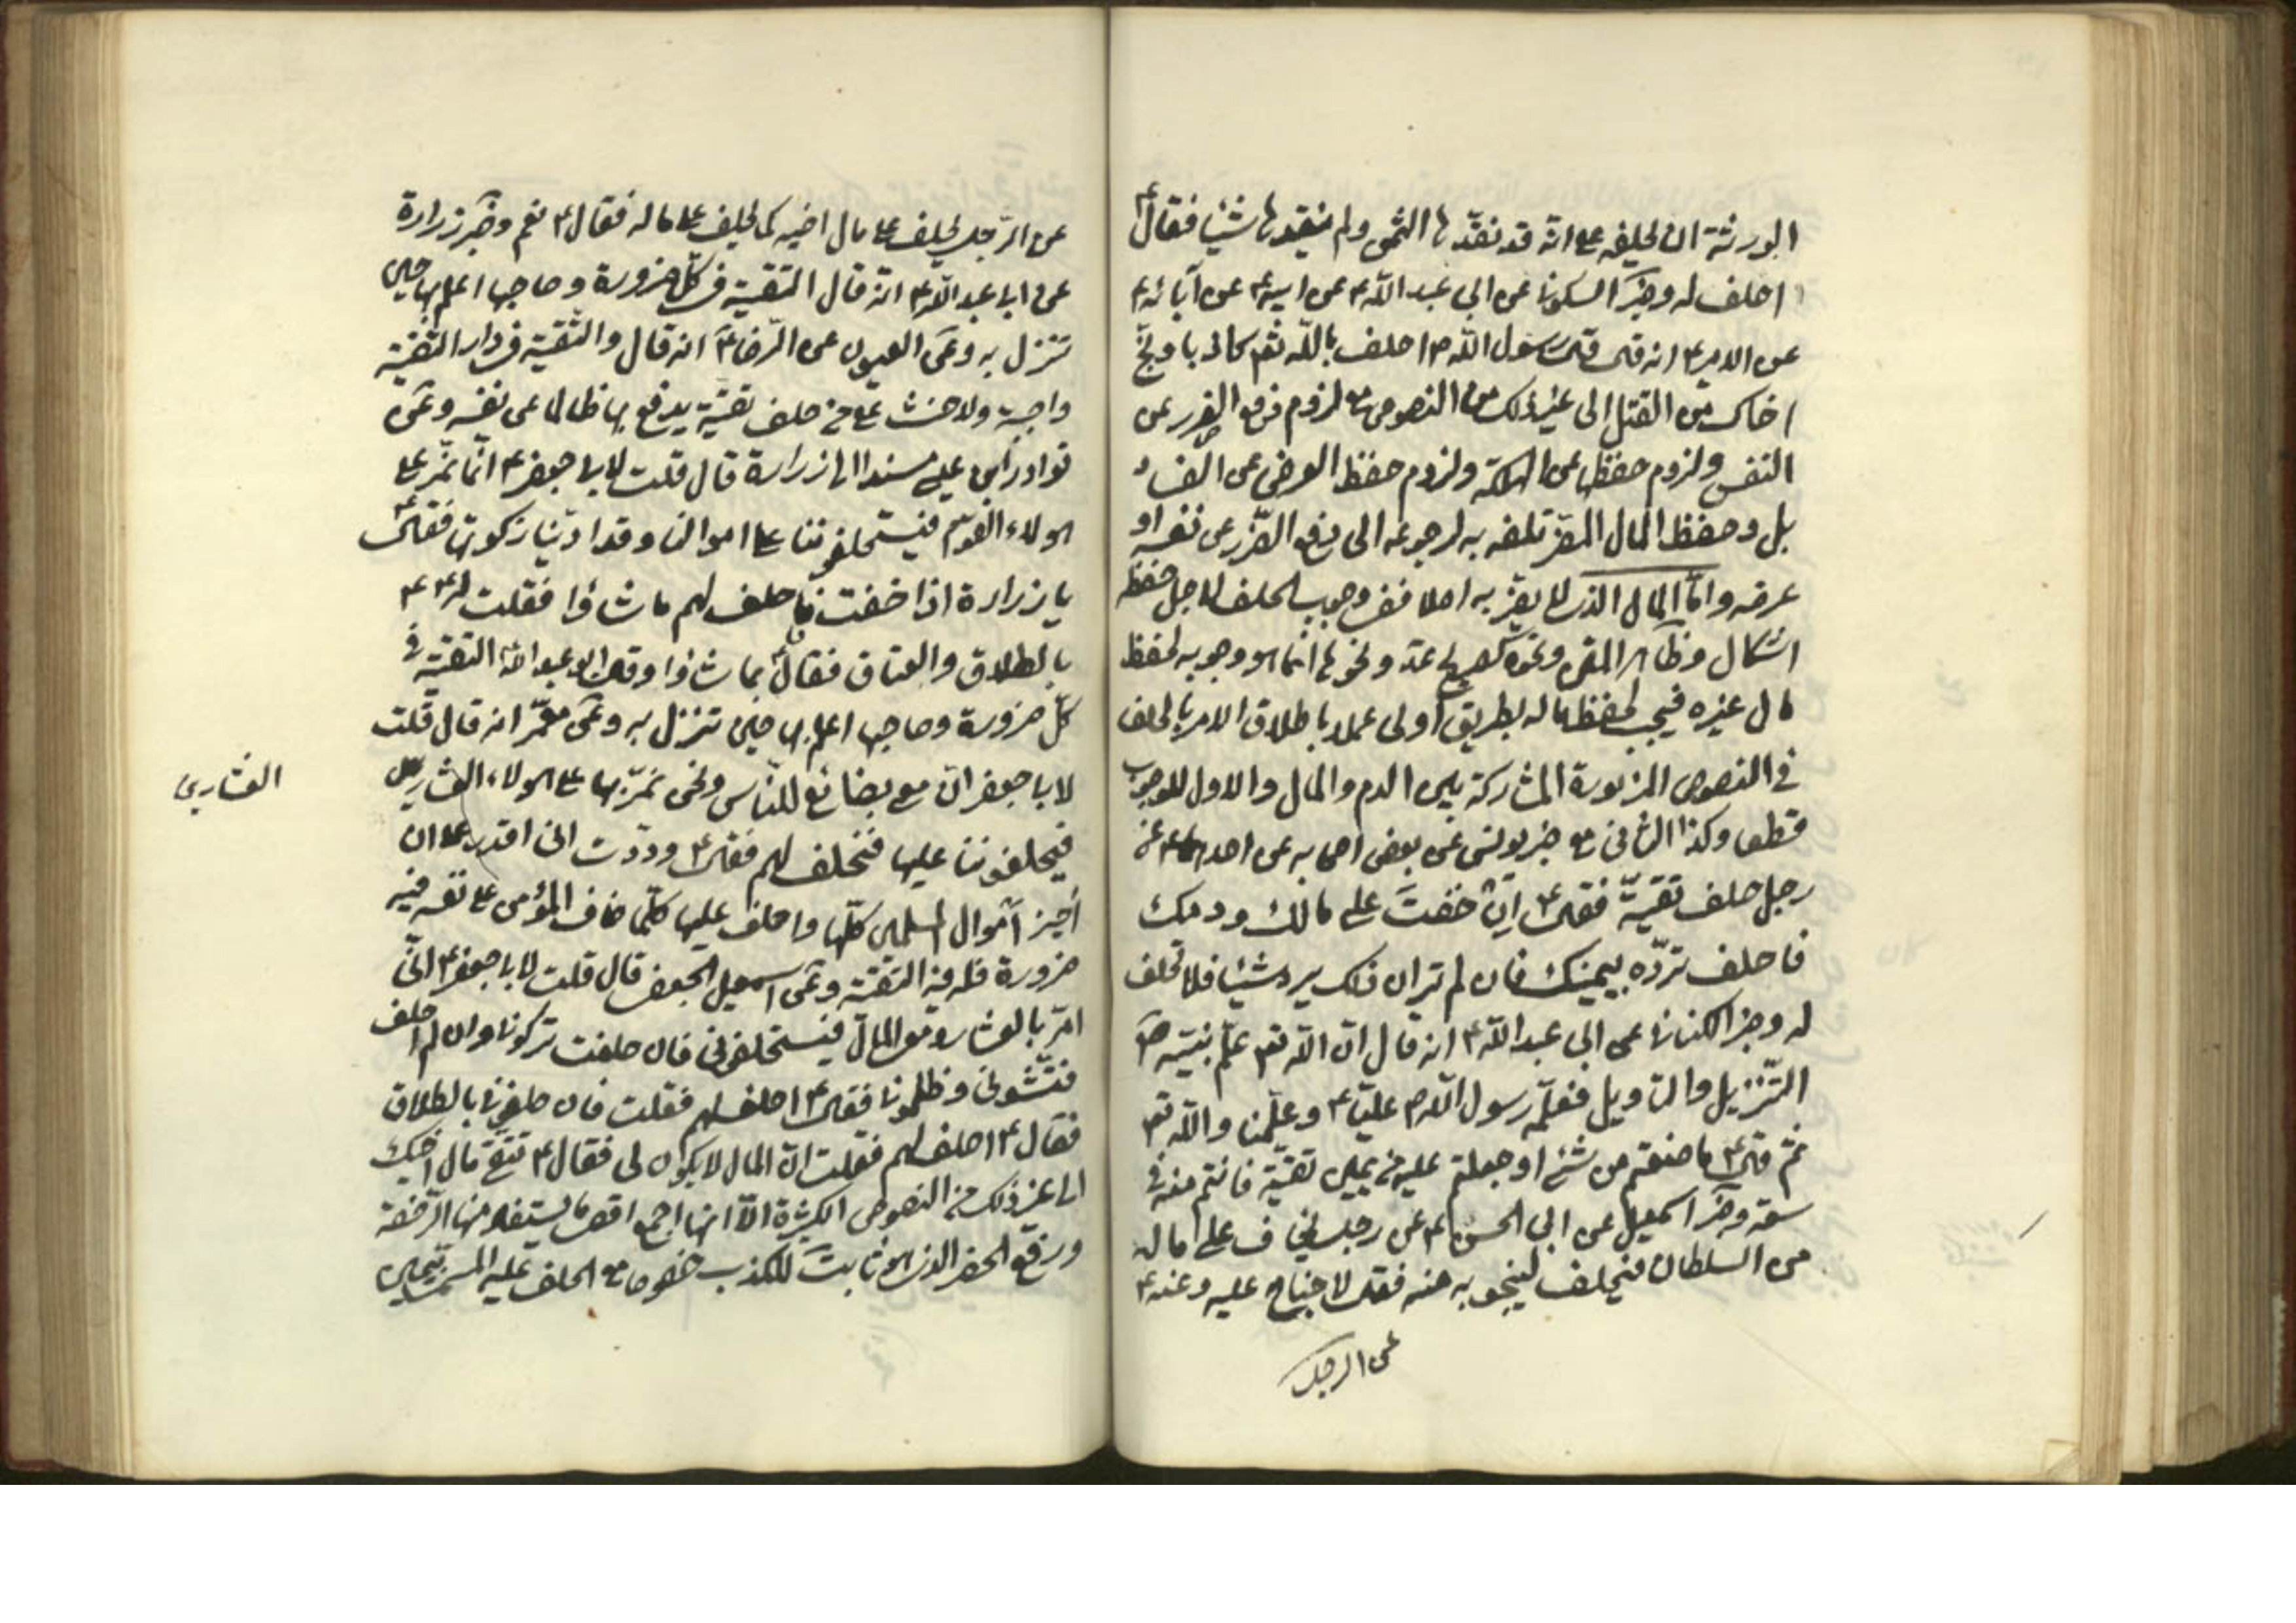 الورثة ان يحلفه على انه قد نقدها الثمن ولم ينقدها شيئا فقال ع
احلف له وخبر السكوني عن ابي عبد الله ع عن ابيه ع عن آبائه ع
عن الامير ع انه قال قال رسول الله ص احلف بالله تعم كاذبا ونج
اخاك من القتل الى غير ذلك من النصوص مع لزوم دفع الضرر عن
النفس ولزوم حفظها عن الهلكة ولزوم حفظ العرض عن الفساد
بل وحفظ المال المضر تلفه به لرجوعه الى دفع الضرر عن نفسه او
عرضه واما المال الذى لا يضر به اصلا ففى وجوب الحلف لاجل حفظه
اشكال وظاهر المتن ونحوه كصريح عدة ونحوها انما هو وجوبه لحفظ
مال غيره فيجب لحفظ ماله بطريق اولى عملا باطلاق الامر بالحلف
في النصوص المزبورة المشاركة بين الدم والمال والاول للوجوب
قطعا وكذا الثاني مع خبر يونس عن بعض اصحابه عن احدهما ع عن
رجل حلف تقية فقال ع ان خفت على مالك ودمك
فاحلف تردّه بيمينك فان لم تر ان ذلك يرد شيئا فلا تحلف
له وخبر الكناني عن ابي عبد الله ع انه قال ان الله تعم علّم نبيه ص
التنزيل والتاويل فعلّمه رسول الله ص عليا ع وعلّمنا والله تعم
ثم قال ع ما صنعتم من شئ او حلفتم عليه من يمين تقية فانتم منه في
سعة وخبر اسمعيل عن ابي الحسن ع عن رجل يخاف على ماله
من السلطان فيحلف لينجو به منه فقال لا جناح عليه وعنه ع
عن الرجل
عن الرجل يحلف على مال اخيه كما يحلف على ماله فقال ع نعم وخبر زرارة
عن ابي عبد الله ع انه قال التقية فى كل ضرورة وصاحبها اعلم بها حين
تنزل به وعن العيون عن الرضا ع انه قال والتقية فى دار التقية
واجبة ولا حنث على من حلف تقية يدفع بها ظالما عن نفسه وعن
نوادر ابن عيسى مسندا الى زرارة قال قلت لابي جعفر ع انا نمر على
هولاء القوم فيستحلفوننا على اموالنا وقد ادينا زكوتها فقال ع
يا زرارة اذا خفت فاحلف لهم ما شاؤا فقلت له ع
بالطلاق والعتاق فقال بما شاؤا وقال ابو عبد الله التقية في
كل ضرورة وصاحبها اعلم بها حين تنزل به وعن معمّر انه قال قلت
لابي جعفر ان مع بضائع للناس ونحن نمرّ بها على هولاء العشارين
فيحلفوننا عليها فنحلف لهم فقال ع وددت انى اقدر على ان
أجيز أموال المسلمين كلها واحلف عليها كلّما خاف المؤمن على نفسه فيه
ضرورة فله فيه التقية وعن اسمعيل الجعفى قال قلت لابي جعفر ع انى
امر بالعشار ومعى المال فيستحلفونى فان حلفت تركونى وان لم احلف
فتشونى وظلمونى فقال ع احلف لهم فقلت فان حلفونى بالطلاق
فقال ع احلف لهم فقلت ان المال لا يكون لى فقال ع تتقى مال اخيك
الى غير ذلك من النصوص الكثيرة الا انها اجمع اقصى ما يستفاد منها الرخصة
ورفع الحظر الذى هو ثابت للكذب خصوصا مع الحلف عليه المسمى بيمين
العشارين